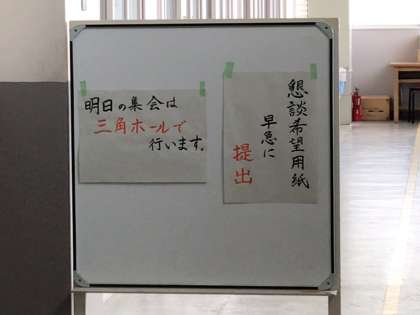 明日の集会は
三角ホールで
行います。
懇談希望用紙
早急に
提出